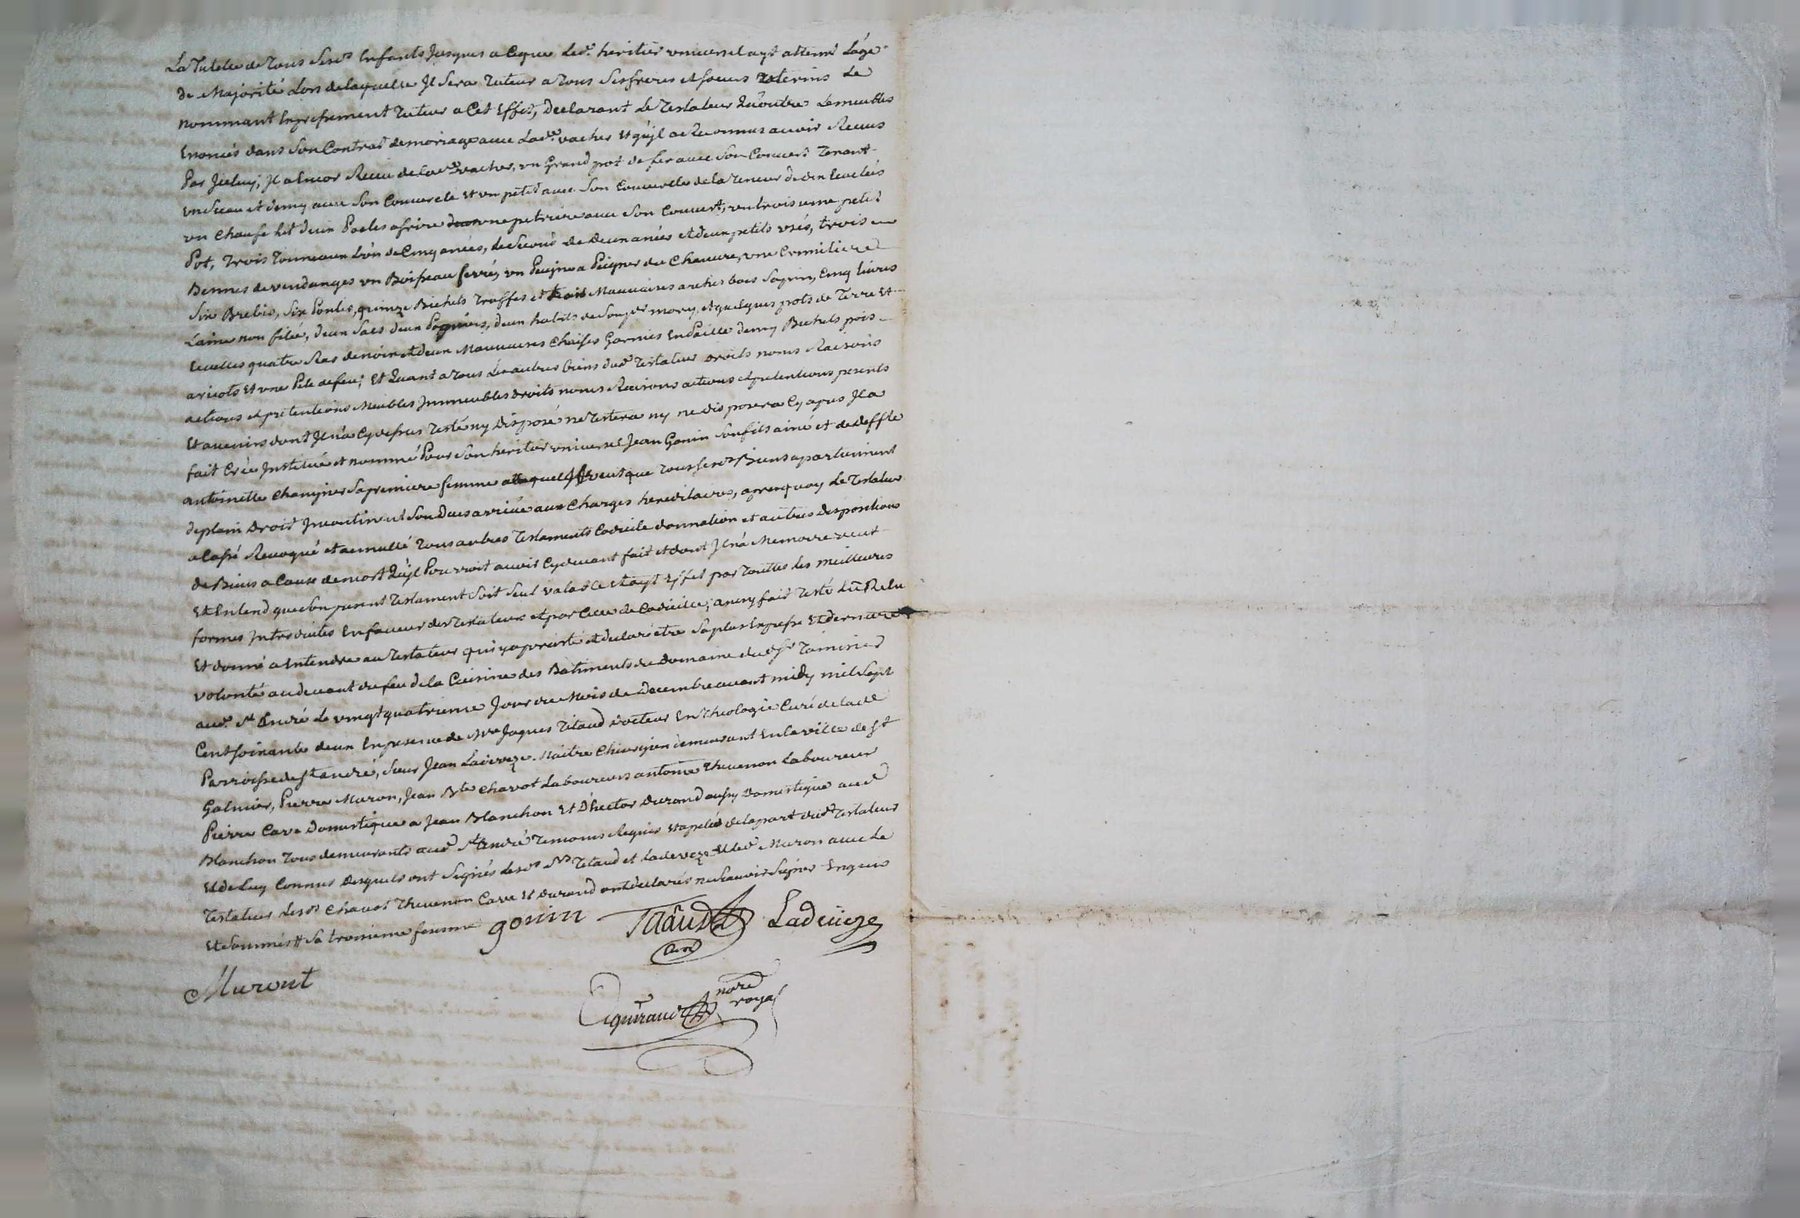 La Tutelle de Tous Sesd.s Enfants Jusques a Ceque Led.t heritier universel ayt atteint Lâge
de Majorité Lors de laquelle Il Sera Tuteur a Tous Ses freres et soeurs uterins Le
nommant Expressement Tuteur a Cet Effet, Declarant Le Testateur qu'outre Le meubles
Enoncés dans Son Contrat de mariage avec Lad.e vacher Et qu'il a Reconnus avoir Reçus
Par Jceluy, Jl a Encor Reçu de lad.e vacher, un Grand pot de fer avec Son Couvert Tenant
un Sceau et demy avec Son Couvercle Et un petit avec Son Couvercle de la Teneur de dix Ecuelées
un Chaufe lit deux Poeles a frire une petriere avec Son Couvert, un troisieme petit
Pot, Trois Tonneaux L'un de Cinq anées, Le Second de Deux anées et deux petits usés, trois
Bennes de vendanges un Boisseau ferré, un Peigne a Peigner du Chanvre, une Cremiliere
Six Brebis, Six Poules, quinze Bichets Truffes et trois Mauvaises arches bois Sapin, Cinq livres
Laine non filée, deux Sacs deux deux habits de Son p.er mary, et quelques pots de Terre Et
Ecuelles quatre Ras de noir et deux Mauvaises Chaises Garnies En Paille demy Bichets pois
aricots Et une Pele de feu; Et Quant a Tous Les autres biens dud.t Testateur Droits noms Raisons
actions et prétentions Meubles Jmmeubles Droits noms Raisons actions et pretentions presents
Et avenirs dont Jl n'a Cydessus Testé ny Disposé ne Testera ny ne disposera Cy apres Jl a
fait Créé Jnstitué et nommé Pour Son heritier universel Jean Gonin Son fils ainé et de deffte
antoinette Sa premiere femme auquel Jl veut que Tous Sesd.s Biens apartiennent
de plain Droit Jncontinent Son Deces arrivé aux Charges hereditaires, apres quoy Le Testateur
a Cassé Revoqué et annullé Tous autres Testaments Codicile donnation et autres Dispositions
de Biens a Cause de mort qu'il Pourroit avoir Cydevant fait et dont Jl n'a Memoire veut
Et Entend que Son present Testament Soit Seul valable et ayt Effet par Toutes les meilleures
formes Jntroduites En faveur des Testateurs et par Ceux de Codicille; ainsy fait Testé Lû Relu
Et donné a Entendre au Testateur qui y a persisté et declaré être Sa plus Expresse Et derniere
volonté au devant du feu de la Cuisine des Batiments du Domaine du s.r
aud.t S.t André Le vingt quatrieme Jour du Mois de Decembre avant midy mil Sept
Cent Soixante deux En presence de M.re Jaques Titaud Docteur En Theologie Curé de lad.e
Parroisse de S.t andré, Sieur Jean Ladeveze Maitre Chirurgien demeurant En la ville de S.t
Galmier, Pierre Muron, Jean B.te Chavot Laboureurs antoine Thevenon Laboureur
Pierre Cave Domestique a Jean Blanchon Et D'hector Durand aussy Domestique aud.t
Blanchon Tous demeurants aud.t S.t André Temoins Requis et apelés de la part dud.t Testateur
Et de Luy Connus Desquels ont Signés Lesd.s S.rs Titaud et Ladeveze Et led.t Muron avec Le
Testateur Lesd.s Chavot Thevenon Cave Et Durand ont declarés ne Scavoir Signer Enquis
Et Sommés # Sa troisieme femme gonin Titaud Ladeveze
Curé
Muront
nore
royal